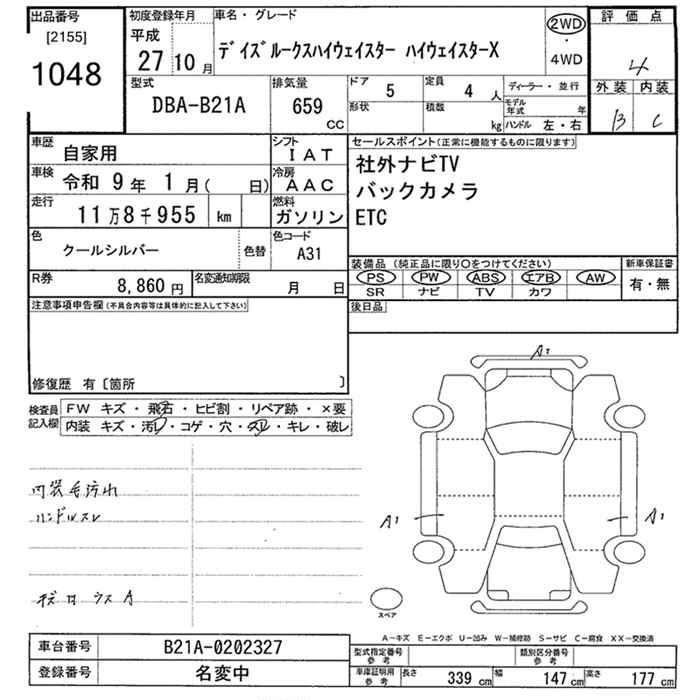 出品番号
[2155]
1048
初度登録年月
平成
27 10月
車名・グレード
デイズルークスハイウェイスター ハイウェイスターX
2WD
・
4WD
評価点
4
外装 内装
B C
型式
DBA-B21A
排気量
659
CC
ドア 5
形状
定員 4 人
積載 kg
ディーラー・並行
モデル年式 年
ハンドル 左・右
車歴 自家用
シフト IAT
車検 令和 9年 1月( 日)
冷房 AAC
走行 11万8千955 km
燃料 ガソリン
色 クールシルバー
色替
色コード A31
R券 8,860円
名変通知期限 月 日
セールスポイント(正常に機能するものに限ります)
社外ナビTV
バックカメラ
ETC
装備品 (純正品に限り○をつけてください)
新車保証書
PS PW ABS エアB AW
SR ナビ TV カワ
有・無
後日品
注意事項申告欄(不具合内容等は具体的に記入して下さい)
修復歴 有〔箇所 〕
検査員記入欄
FW キズ・飛石・ヒビ割・リペア跡・×要
内装 キズ・汚レ・コゲ・穴・スレ・キレ・破レ
内装毛汚れ
ハンドルスレ
A1
A1
A1
スペア
A-キズ E-エクボ U-凹み W-補修跡 S-サビ C-腐食 XX-交換済
車台番号 B21A-0202327
登録番号 名変中
型式指定番号 参考
類別区分番号 参考
車庫証明用 参考
長さ 339 cm
幅 147 cm
高さ 177 cm